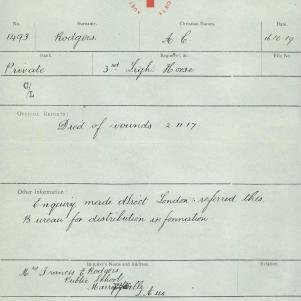 No. Surname. Christian Names. Date.
1493 Rodgers. A. C.
Rank. Regiment, &c. File No.
Private 3rd Light Horse
C/L
OFFICIAL REPORTS:
Died of wounds 2.11.17.
Other Information:
Enquiry made direct London - referred this
Bureau for distribution information
Inquirer's Name and Address. Relation
Mrs Frances E Rodgers
Public School
S. Aus